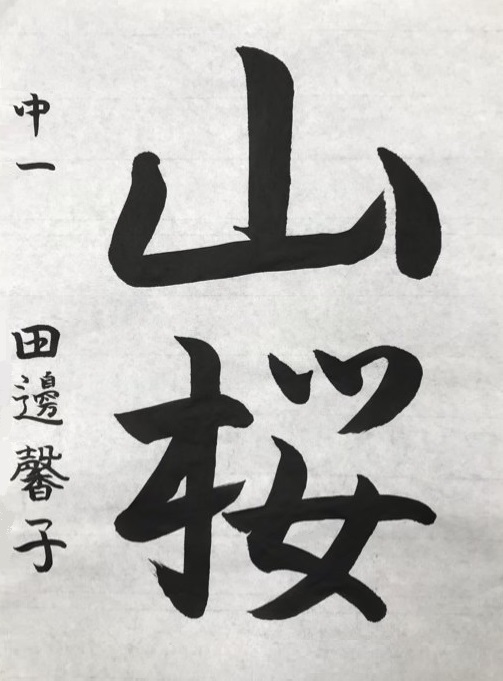 山桜
中一 田邊馨子